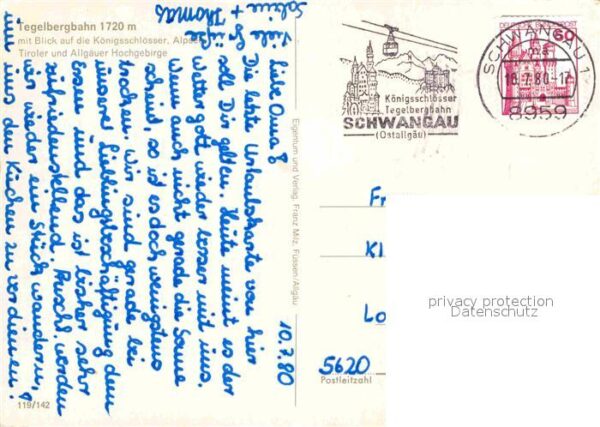 Tegelbergbahn 1720 m
mit Blick auf die Königsschlösser, Alpsee
Tiroler und Allgäuer Hochgebirge
10.7.80
Liebe Oma!
Die letzte Urlaubskarte von hier
soll Dir gelten. Heute meint es der
Wettergott wieder besser mit uns.
Wenn auch nicht gerade die Sonne
scheint, so ist es doch wenigstens
trocken. Wir sind gerade bei
unserer Lieblingsbeschäftigung dem
Essen und das ist bisher sehr
zufriedenstellend. Anschl. werden
wir wieder ein Stück wandern,
um uns den Kuchen zu verdienen.
Viele Grüße
Sabine
+ Thomas
119/142
Eigentum und Verlag Franz Milz, Füssen/Allgäu
Königsschlösser
Tegelbergbahn
SCHWANGAU
(Ostallgäu)
60
SCHWANGAU 1
ma
10.7.80-17
8959
Fr
Kl
Lo
5620
Postleitzahl
privacy protection
Datenschutz